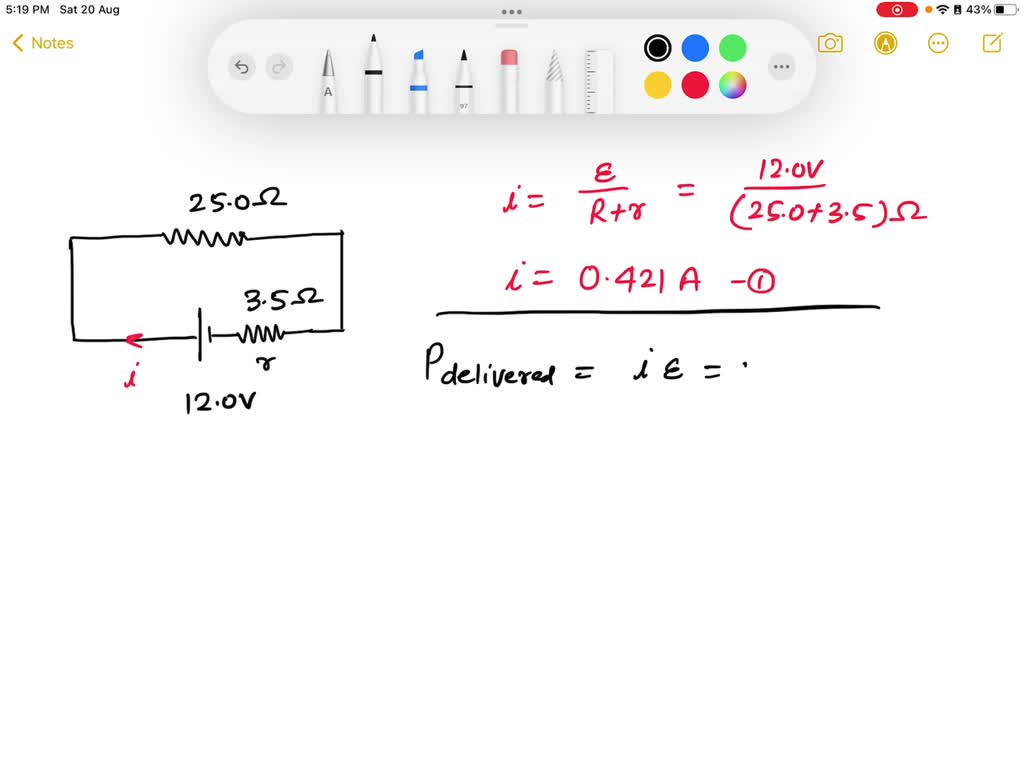 5:19 PM Sat 20 Aug
43%
Notes
A
97
25.0Ω
3.5Ω
r
i
12.0V
i = ε/(R+r) = 12.0V/(25.0+3.5)Ω
i = 0.421 A -①
Pdelivered = i ε =